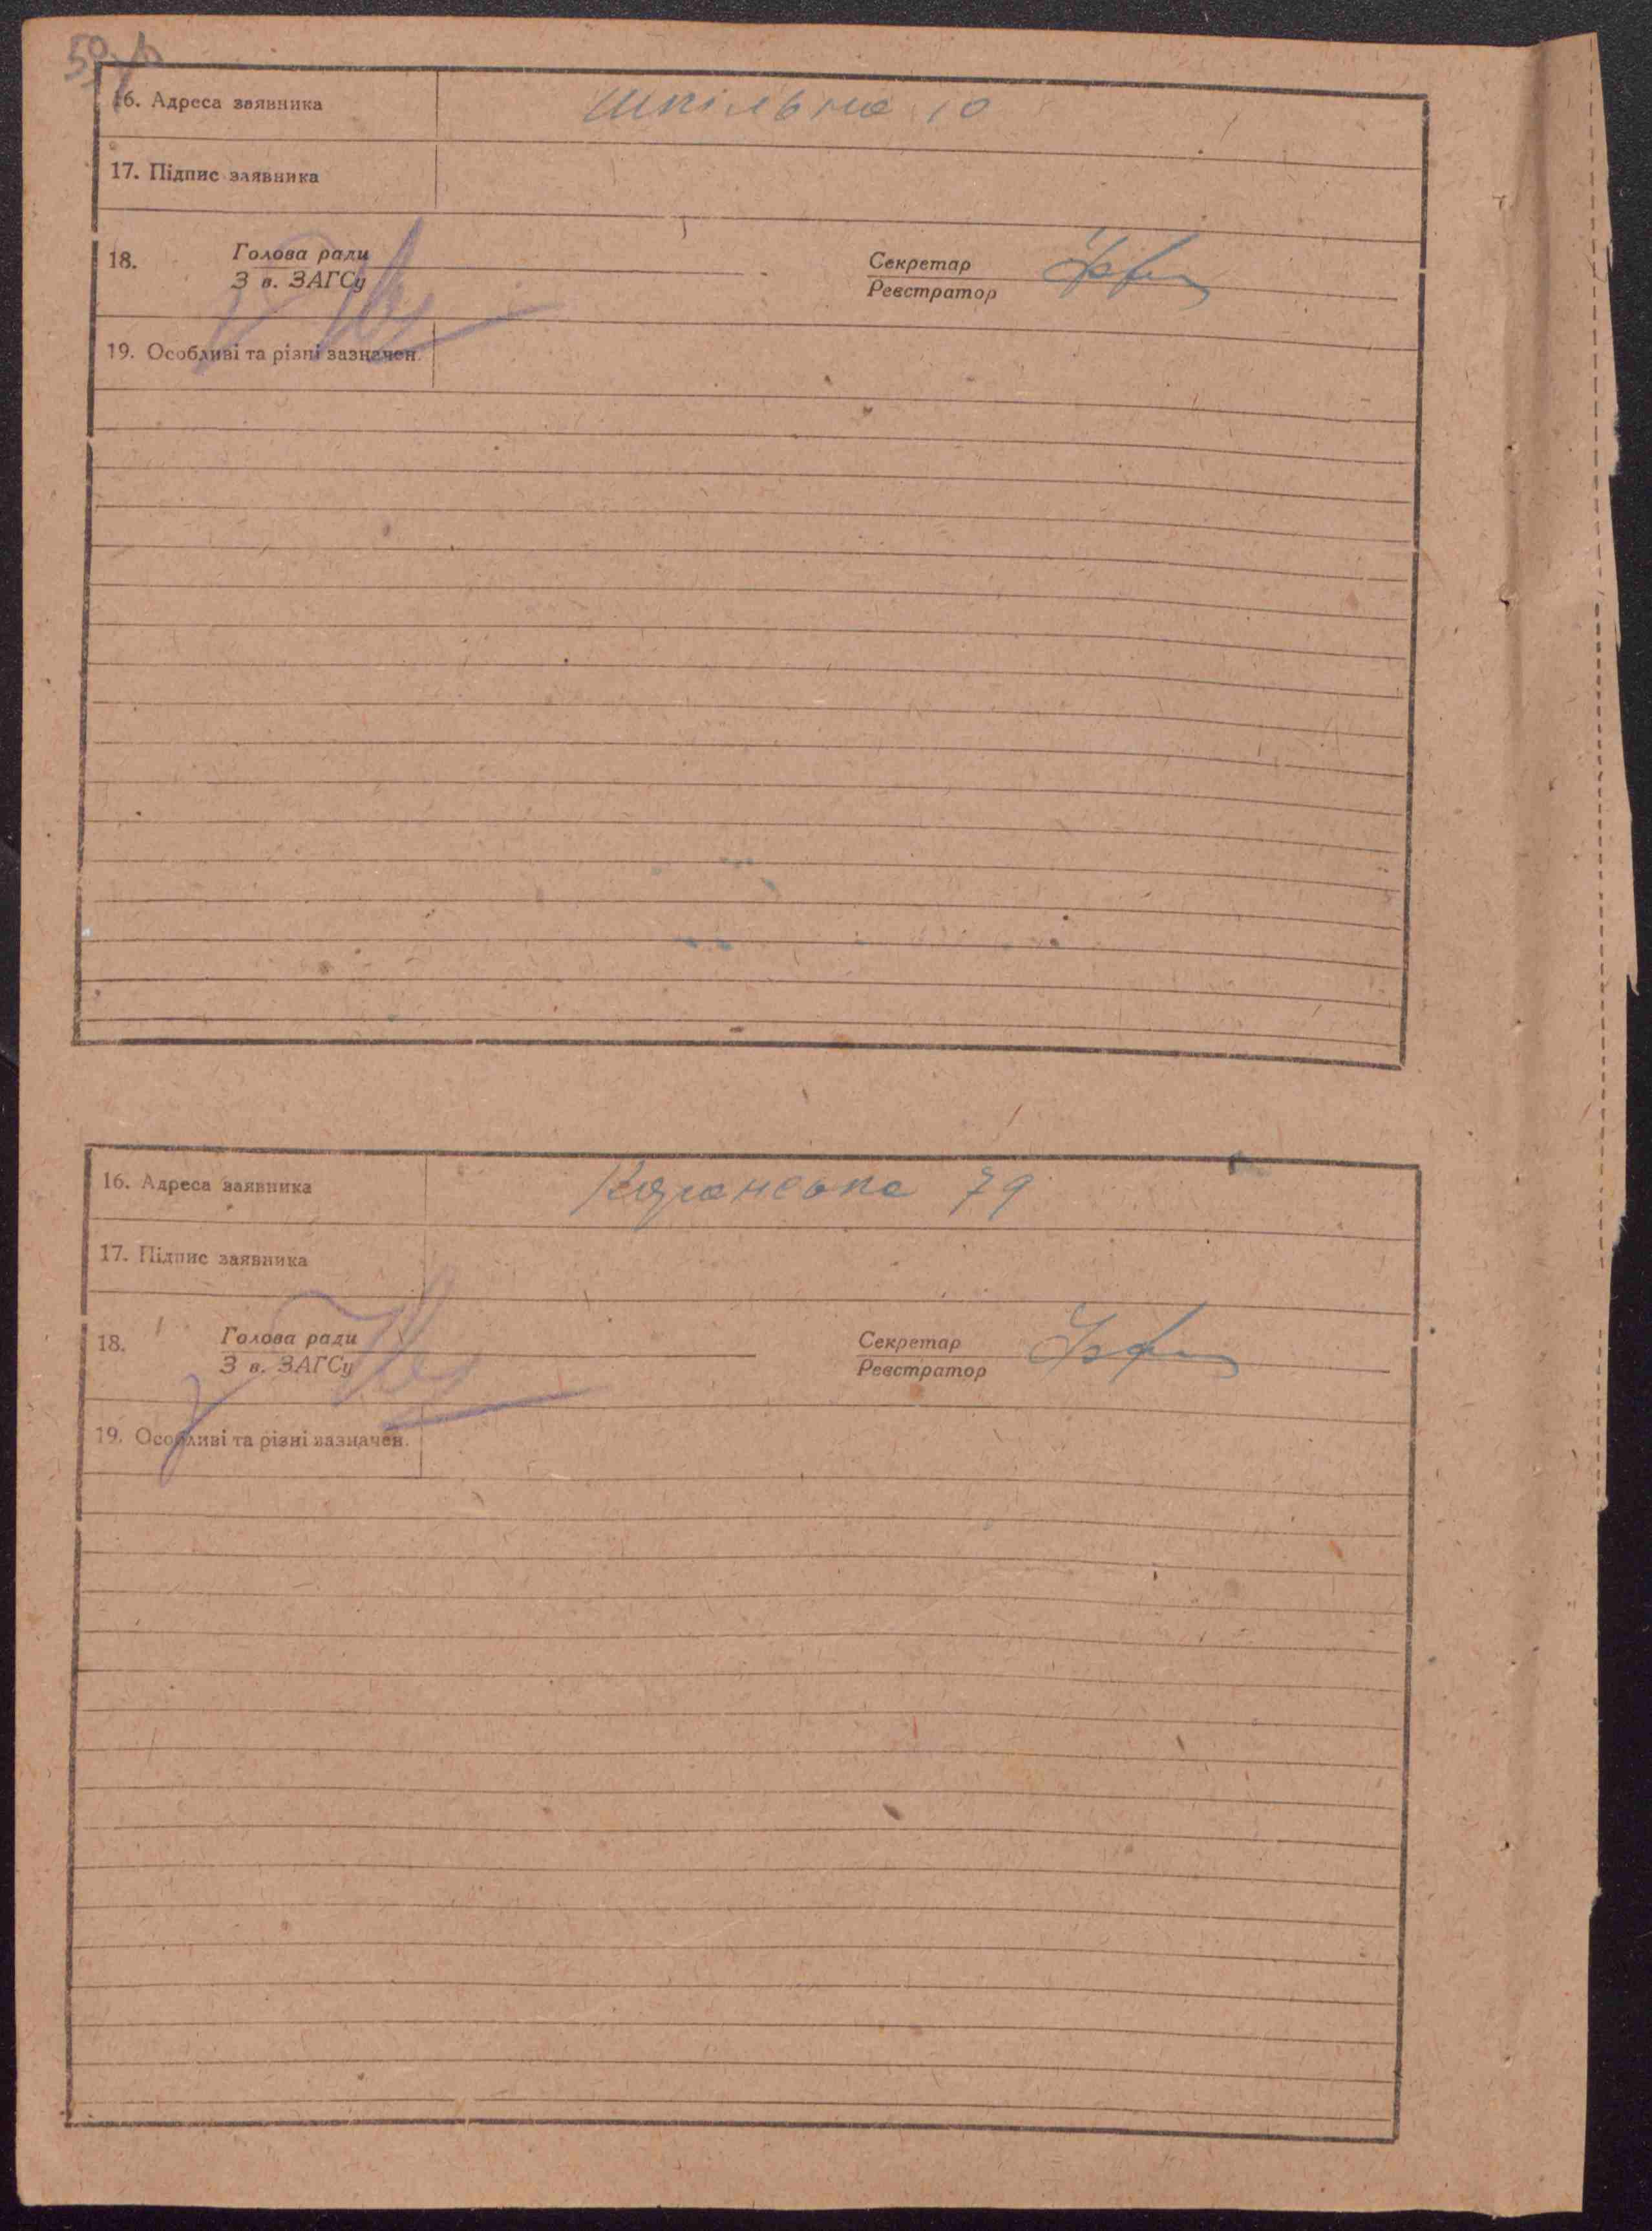 16. Адреса заявника Шкільна 10
17. Підпис заявника
18. Голова ради Секретар
З в. ЗАГСу Реєстратор
19. Особливі та різні зазначен.
16. Адреса заявника 79
17. Підпис заявника
18. Голова ради Секретар
З в. ЗАГСу Реєстратор
19. Особливі та різні зазначен.